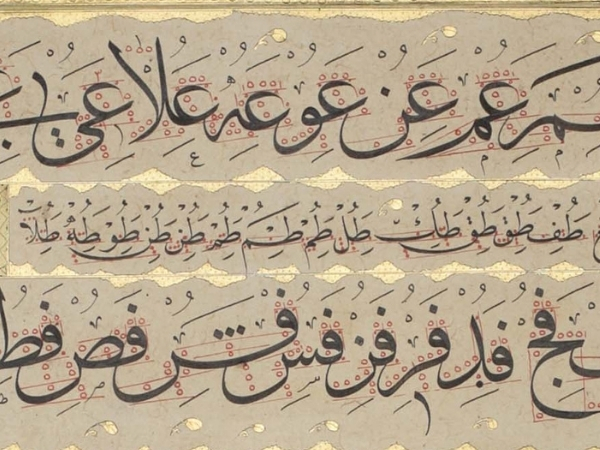 عم عن عو عه علا عي
طف طق طق طك طل طم طم طم طن طن طو طه طلا
فج فد فر فر فس فس فص فط